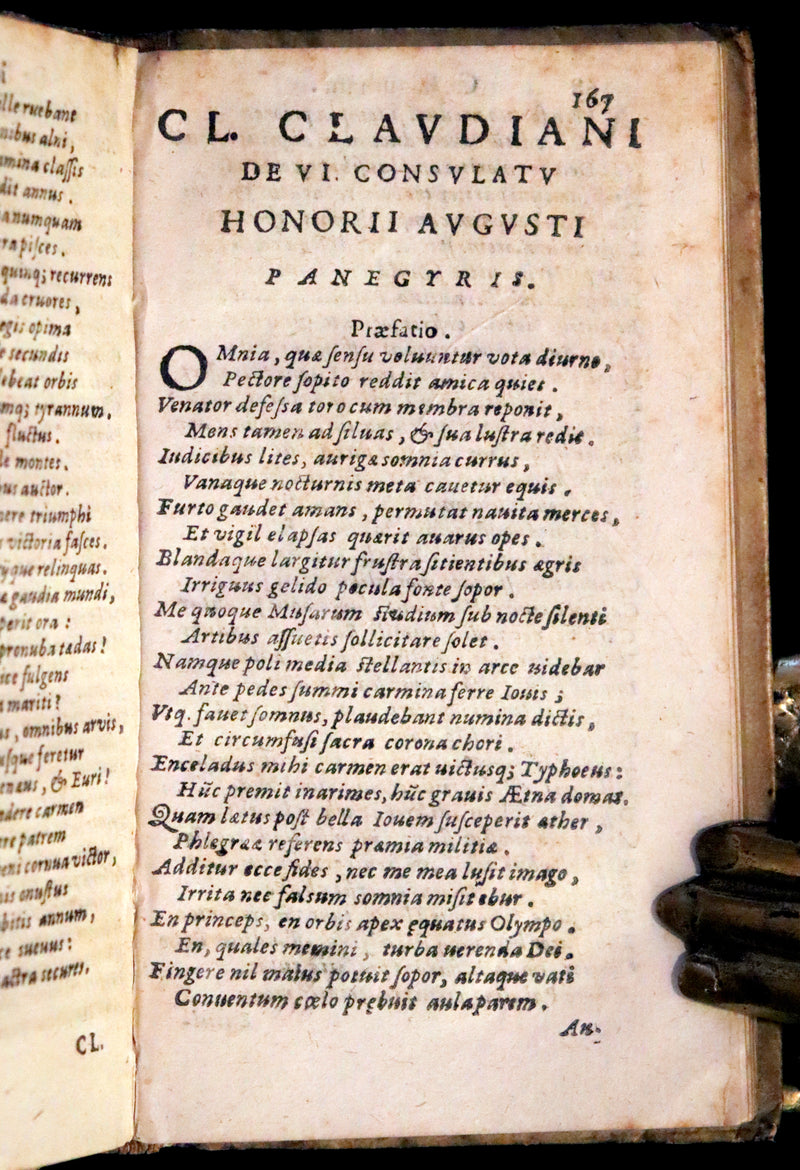 lle ruebant
nibus alni,
mina classis
dit annus.
anumquam
rapisces.
quinq; recurrens
da cruores,
egis opima
e secundis
debeat orbis
mq; tyrannum,
fluctus.
le montes.
us auctor.
nere triumphi
victoria fasces.
que relinquas.
gaudia mundi,
perit ora:
pronuba tædas!
ice fulgens
a mariti?
us, omnibus arvis,
usque feretur
& Euri!
ndere carmen
re patrem
cornua victor,
is onustus
bitis annum,
ce sueuus:
astra secures.
CL.
167
CL. CLAVDIANI
DE VI. CONSVLATV
HONORII AVGVSTI
PANEGYRIS.
Præfatio.
OMnia, quæ sensu voluuntur vota diurno,
Pectore sopito reddit amica quies.
Venator defessa toro cum membra reponit,
Mens tamen ad siluas, & sua lustra redit.
Iudicibus lites, aurigæ somnia currus,
Vanaque nocturnis meta cauetur equis.
Furto gaudet amans, permutat nauita merces,
Et vigil elapsas quærit auarus opes.
Blandaque largitur frustra sitientibus ægris
Irriguus gelido pocula fonte sopor.
Me quoque Musarum studium sub nocte silenti
Artibus assuetis sollicitare solet.
Namque poli media stellantis in arce uidebar
Ante pedes summi carmina ferre Iouis;
Vtq. fauet somnus, plaudebant numina dictis,
Et circumfusi sacra corona chori.
Enceladus mihi carmen erat uictusq; Typhoeus:
Hũc premit inarimes, hũc grauis Ætna domat.
Quam lætus post bella Iouem susceperit æther,
Phlegrææ referens præmia militiæ.
Additur ecce fides, nec me mea lusit imago,
Irrita nec falsum somnia misit ebur.
En princeps, en orbis apex ęquatus Olympo.
En, quales memini, turba uerenda Dei.
Fingere nil maius potuit sopor, altaque vati
Conuentum cœlo prębuit aula parem.
An-